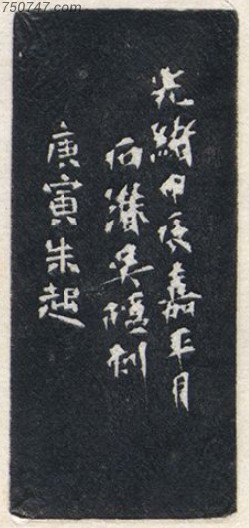 750747.com
光緒甲辰嘉平月
石潛吳隱刻
庚寅朱起